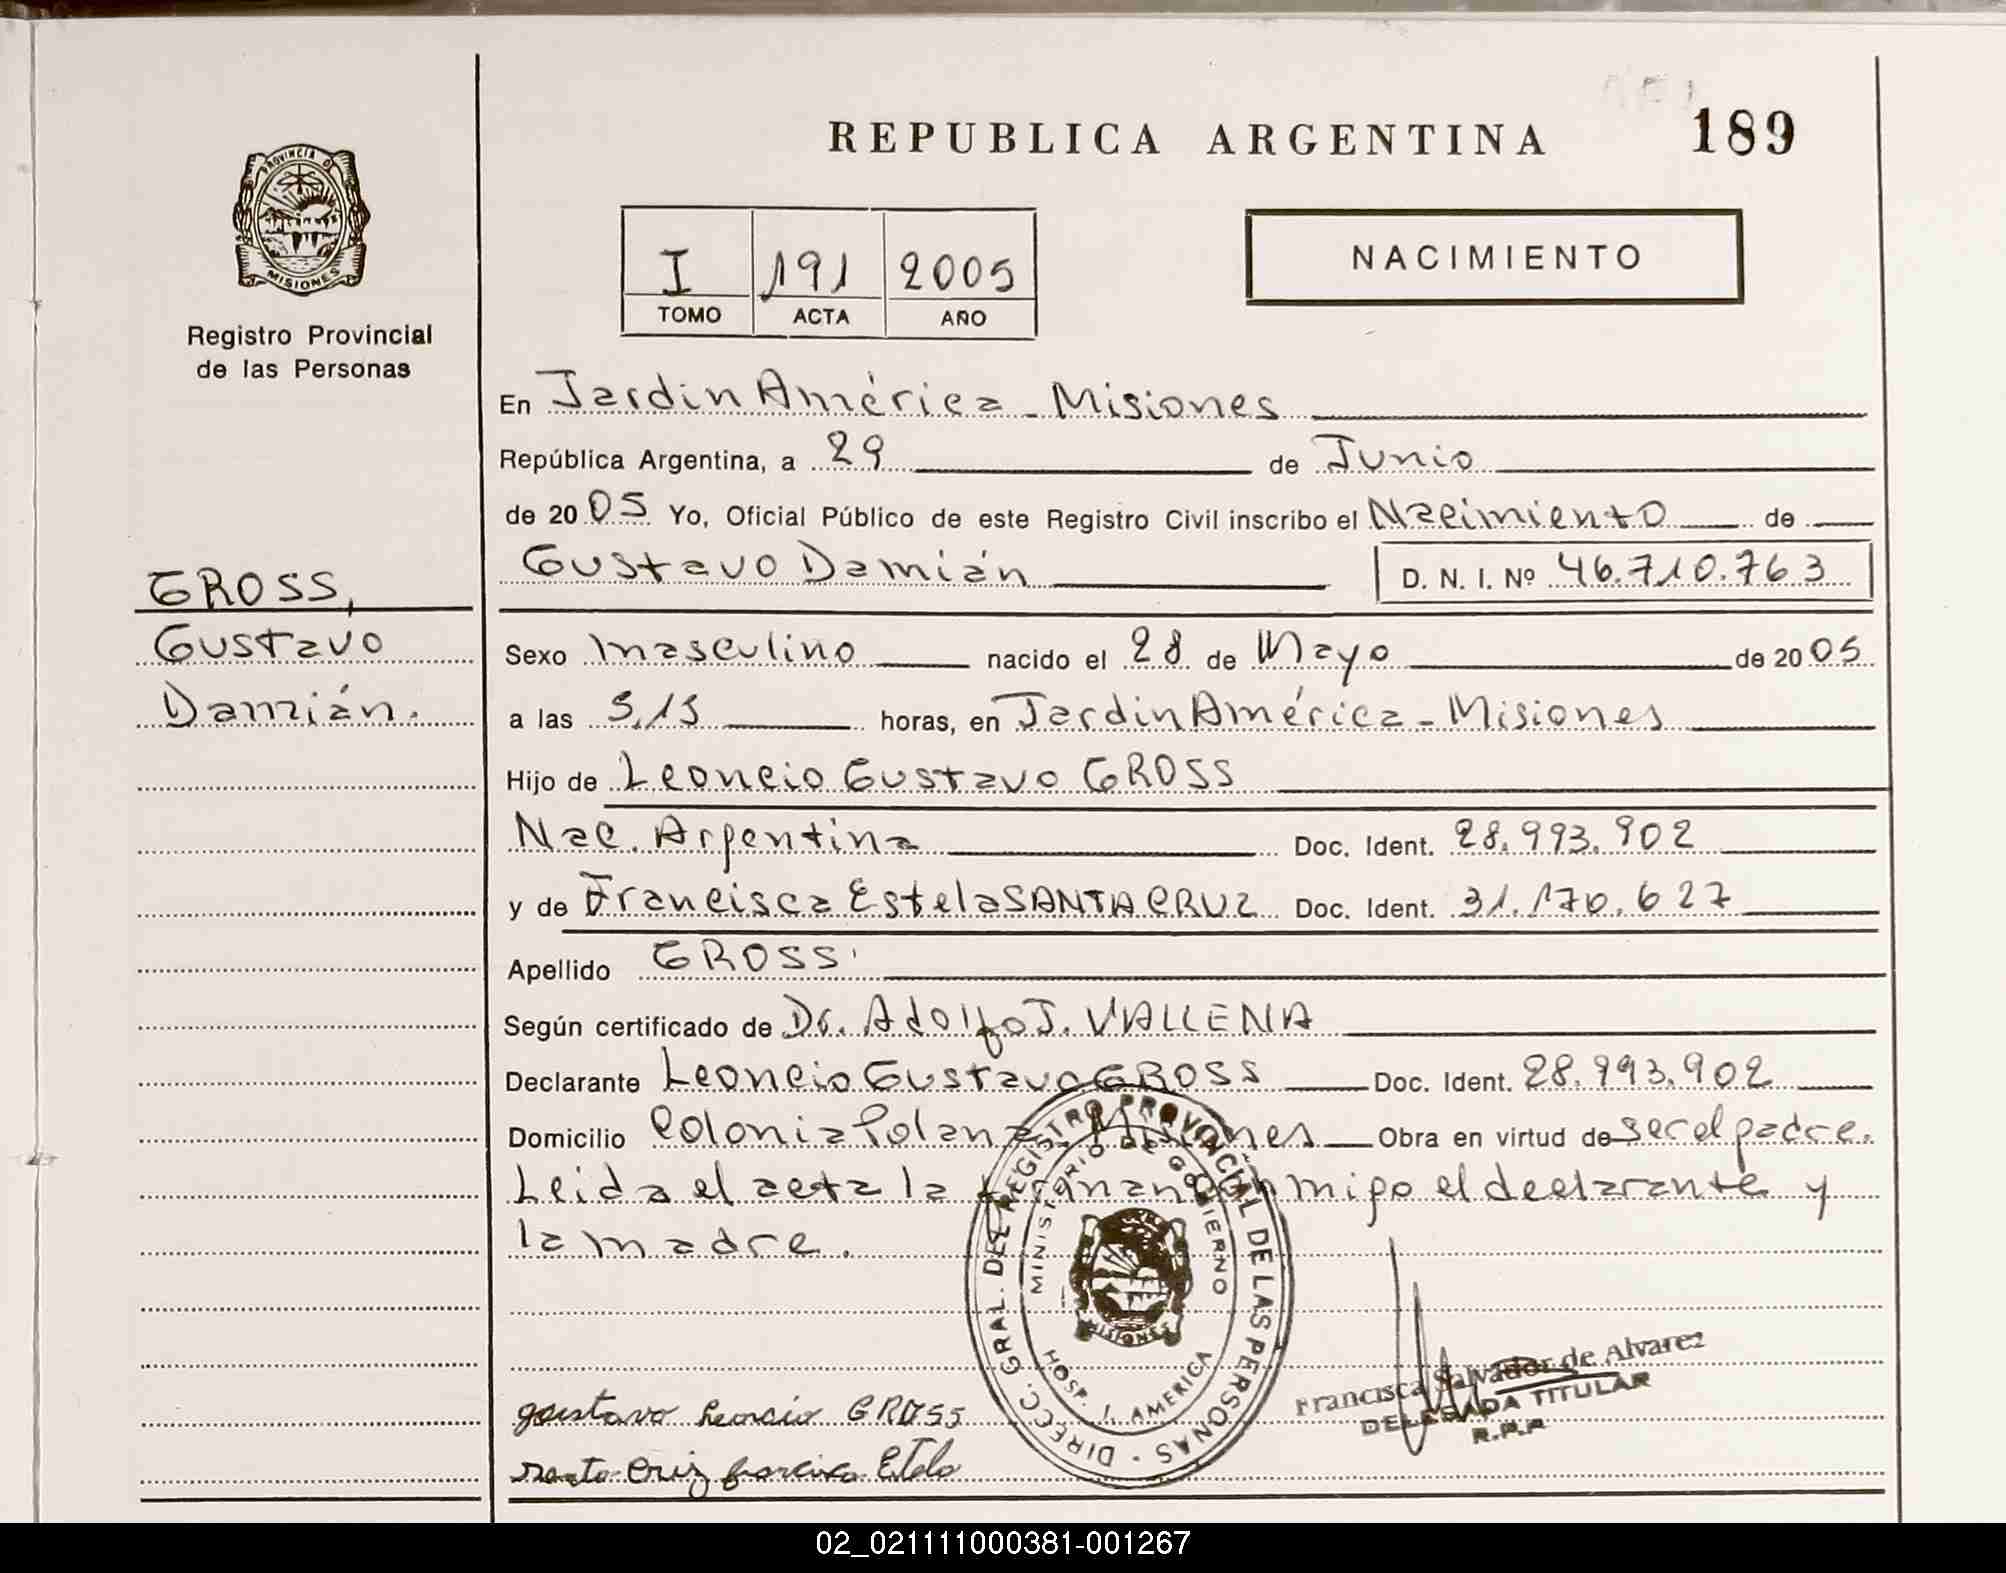 REPUBLICA ARGENTINA
189
PROVINCIA D
MISIONES
Registro Provincial
de las Personas
I 191 2005
TOMO ACTA AÑO
NACIMIENTO
En Jardin América - Misiones
República Argentina, a 29 de Junio
de 2005 Yo, Oficial Público de este Registro Civil inscribo el Nacimiento de
Gustavo Damián D. N. I. Nº 46.710.763
GROSS,
Gustavo
Damián.
Sexo masculino nacido el 28 de Mayo de 2005
a las 5,15 horas, en Jardin América - Misiones
Hijo de Leoncio Gustavo GROSS
Nac. Argentina Doc. Ident. 28.993.902
y de Francisca Estela SANTA CRUZ Doc. Ident. 31.170.627
Apellido GROSS
Según certificado de Dr. Adolfo J. VALLENA
Declarante Leoncio Gustavo GROSS Doc. Ident. 28.993.902
Domicilio Colonia Polana - Misiones Obra en virtud de ser el padre.
Leida el acta la firman conmigo el declarante y
la madre.
DIRECC. GRAL. DEL REGISTRO PROVINCIAL DE LAS PERSONAS
MINISTERIO DE GOBIERNO
MISIONES
HOSP. J. AMERICA
Francisca Salvador de Alvarez
DELEGADA TITULAR
R.P.P
gustavo Leoncio GROSS
santa Cruz francisca Estela
02_021111000381-001267